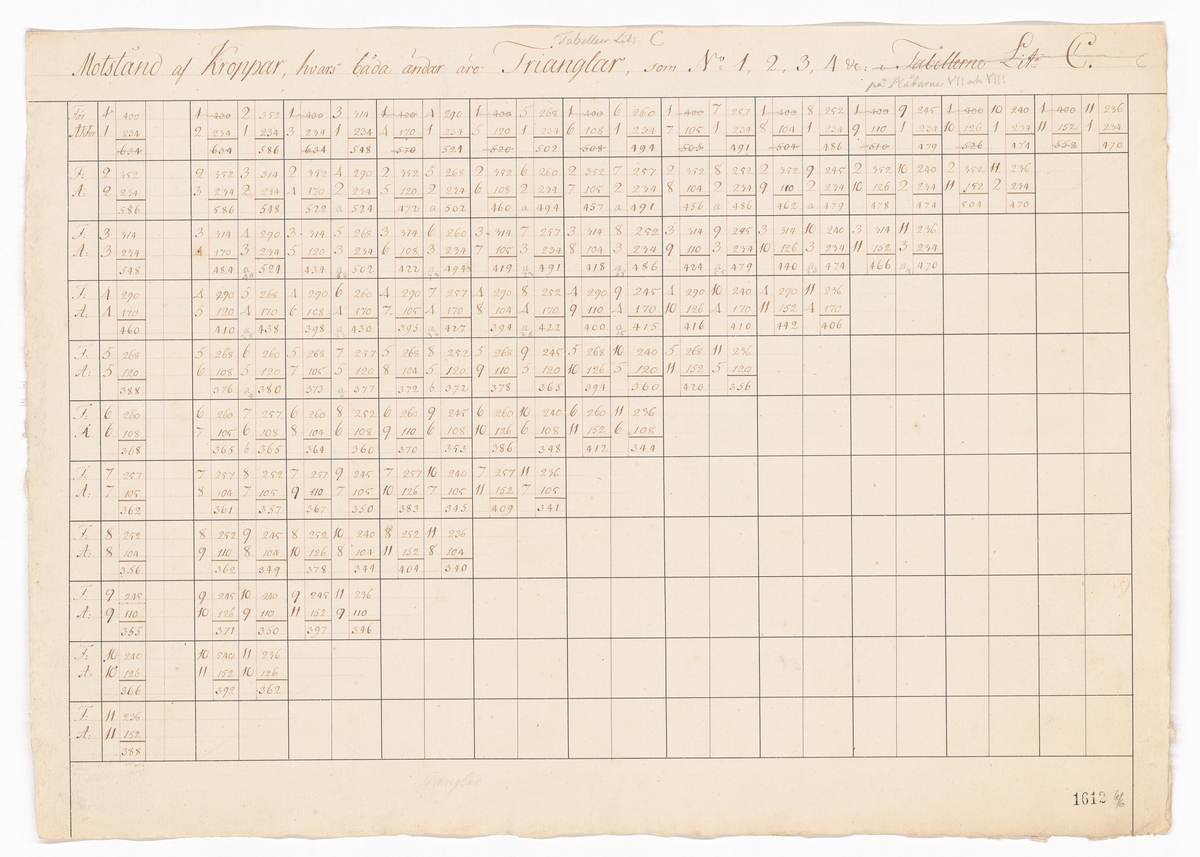 Tabellen Litt. C
Motstånd af Kroppar, hvars båda ändar äro Trianglar, som No. 1, 2, 3, 4 &c: i Tabellerne Litt. C. C
på Plåtarne VII och VIII
För 1 400 1 400 2 352 1 400 3 314 1 400 4 290 1 400 5 268 1 400 6 260 1 400 7 257 1 400 8 252 1 400 9 245 1 400 10 240 1 400 11 236
Akter 1 234 2 234 1 234 3 234 1 234 4 170 1 234 5 120 1 234 6 108 1 234 7 105 1 234 8 104 1 234 9 110 1 234 10 126 1 234 11 152 1 234
634 634 586 634 548 570 524 520 502 508 494 505 491 504 486 510 479 526 474 552 470
F: 2 352 2 352 3 314 2 352 4 290 2 352 5 268 2 352 6 260 2 352 7 257 2 352 8 252 2 352 9 245 2 352 10 240 2 352 11 236
A: 2 234 3 234 2 234 4 170 2 234 5 120 2 234 6 108 2 234 7 105 2 234 8 104 2 234 9 110 2 234 10 126 2 234 11 152 2 234
586 586 548 522 a 524 472 a 502 460 a 494 457 a 491 456 a 486 462 a 479 478 474 504 470
F: 3 314 3 314 4 290 3 314 5 268 3 314 6 260 3 314 7 257 3 314 8 252 3 314 9 245 3 314 10 240 3 314 11 236
A: 3 234 4 170 3 234 5 120 3 234 6 108 3 234 7 105 3 234 8 104 3 234 9 110 3 234 10 126 3 234 11 152 3 234
548 484 a 524 434 a 502 422 a 494 419 a 491 418 a 486 424 a 479 440 a 474 466 a 470
F: 4 290 4 290 5 268 4 290 6 260 4 290 7 257 4 290 8 252 4 290 9 245 4 290 10 240 4 290 11 236
A: 4 170 5 120 4 170 6 108 4 170 7 105 4 170 8 104 4 170 9 110 4 170 10 126 4 170 11 152 4 170
460 410 a 438 398 a 430 395 a 427 394 a 422 400 a 415 416 410 442 406
F: 5 268 5 268 6 260 5 268 7 257 5 268 8 252 5 268 9 245 5 268 10 240 5 268 11 236
A: 5 120 6 108 5 120 7 105 5 120 8 104 5 120 9 110 5 120 10 126 5 120 11 152 5 120
388 376 a 380 373 a 377 372 b 372 378 365 394 360 420 356
F: 6 260 6 260 7 257 6 260 8 252 6 260 9 245 6 260 10 240 6 260 11 236
A: 6 108 7 105 6 108 8 104 6 108 9 110 6 108 10 126 6 108 11 152 6 108
368 365 b 365 364 360 370 353 386 348 412 344
F: 7 257 7 257 8 252 7 257 9 245 7 257 10 240 7 257 11 236
A: 7 105 8 104 7 105 9 110 7 105 10 126 7 105 11 152 7 105
362 361 357 367 350 383 345 409 341
F: 8 252 8 252 9 245 8 252 10 240 8 252 11 236
A: 8 104 9 110 8 104 10 126 8 104 11 152 8 104
356 362 349 378 344 404 340
F: 9 245 9 245 10 240 9 245 11 236
A: 9 110 10 126 9 110 11 152 9 110
355 371 350 397 346
F: 10 240 10 240 11 236
A: 10 126 11 152 10 126
366 392 362
F: 11 236
A: 11 152
388
Trianglar
1612 6/6